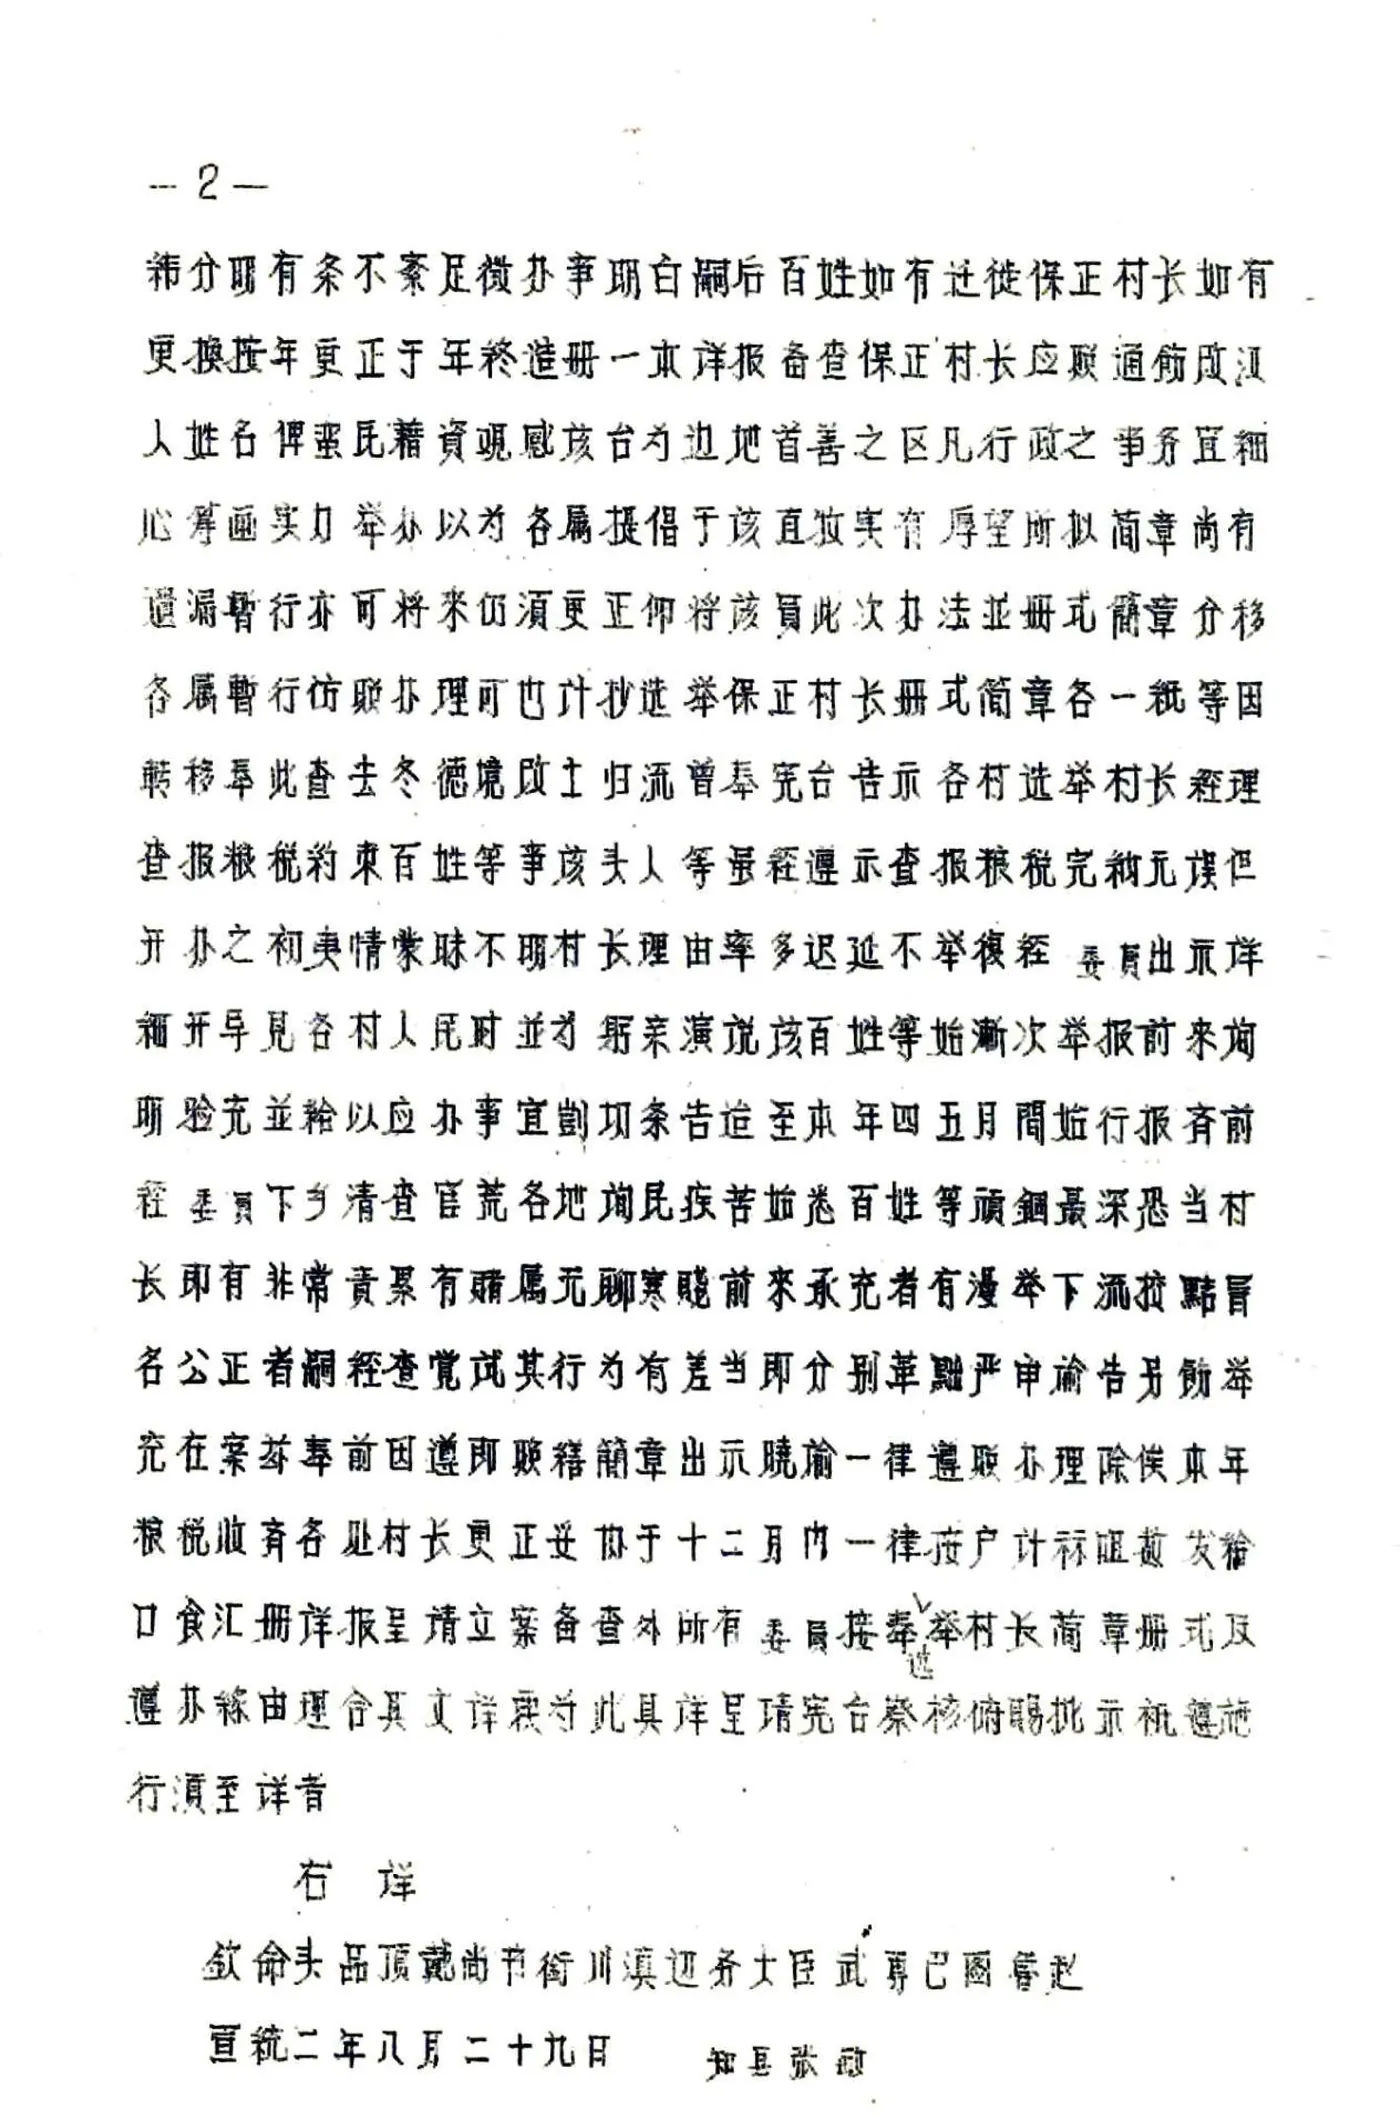 —2—
纬分明有条不紊足徵办事明白嗣后百姓如有迁徙保正村长如有
更换按年更正于年终造册一本详报备查保正村长应照通饬改汉
人姓名俾蛮民藉資覌感该台为边地首善之区凡行政之事务宜细
心筹画实力举办以为各属提倡于该直牧实有厚望所拟简章尚有
遗漏暂行亦可将来仍須更正仰将该員此次办法並册式簡章分移
各属暫行仿照办理可也计抄选举保正村长册式简章各一纸等因
转移奉此查去冬德境改土归流曾奉宪台告示各村选举村长经理
查报粮税约束百姓等事该头人等虽经遵示查报粮税完纳无误但
开办之初夷情蒙昧不明村长理由率多迟延不举複经委員出示详
细开导見各村人民时並为躬亲演说该百姓等始漸次举报前来询
明验充並給以应办事宜劄切条告迨至本年四五月間始行报齐前
经委員下乡清查官荒各地询民疾苦始悉百姓等頑錮最深恐当村
长即有非常责累有賭属无聊寒畯前来承充者有漫举下流狡黠冒
名公正者嗣经查覚试其行为有差当即分别革黜严申谕告另饬举
充在案兹奉前因遵即照繕簡章出示曉谕一律遵照办理除俟本年
粮税收齐各处村长更正妥协于十二月内一律按户计标阻数发給
口食汇册详报呈请立案备查外所有委員接奉选举村长简章册式及
遵办缘由理合具文详覆为此具详呈请宪台察核俯賜批示袛遵施
行須至详者
右 详
钦命头品顶戴尚书衔川滇边务大臣武勇巴图鲁赵
宣统二年八月二十九日 知县张